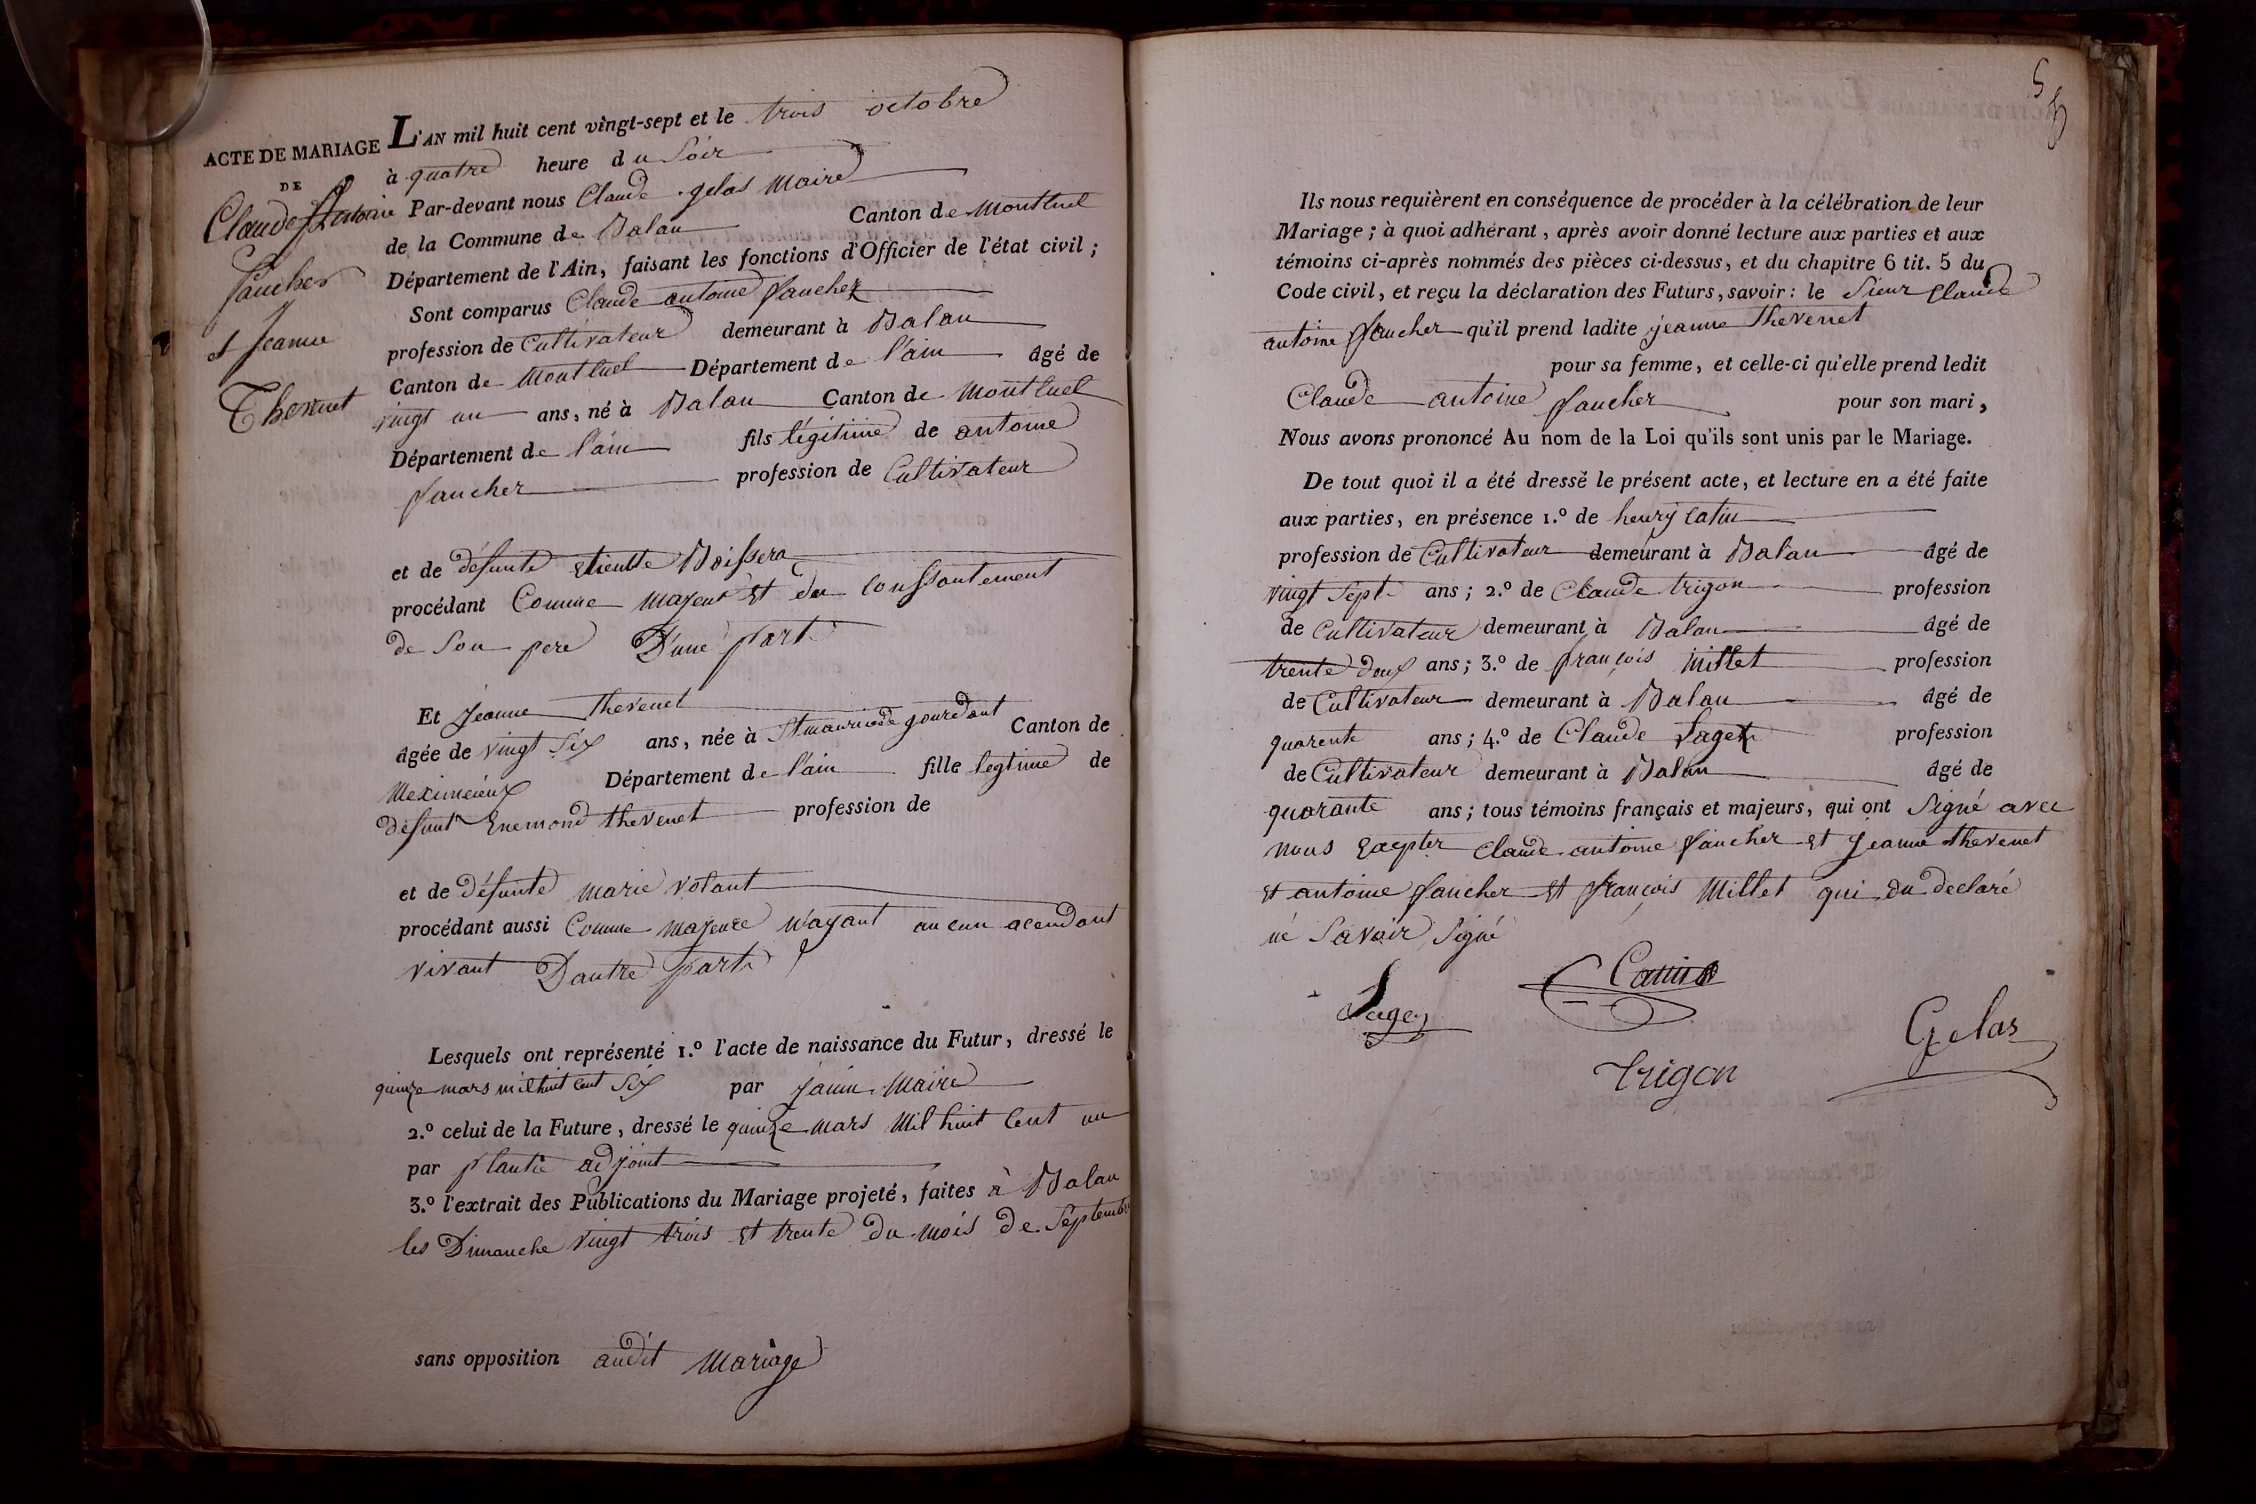 ACTE DE MARIAGE
DE
Claude Antoine
faucher
et Jeanne
Thevenet
L'AN mil huit cent vingt-sept et le trois octobre
à quatre heure du Soir
Par-devant nous Claude gelas Maire
de la Commune de Balan Canton de Montluel
Département de l'Ain, faisant les fonctions d'Officier de l'état civil ;
Sont comparus Claude antoine faucher
profession de Cultivateur demeurant à Balan
Canton de Montluel Département de l'ain âgé de
vingt un ans, né à Balan Canton de Montluel
Département de l'ain fils légitime de antoine
faucher profession de Cultivateur
et de défunte etiennette Boissera
procédant Comme majeur et du conssantement
de Son pere D'une part
Et Jeanne thevenet
âgée de vingt Six ans, née à St maurice de gourdant Canton de
Meximieux Département de l'ain fille legtime de
défunt Enemond thevenet profession de
et de défunte marie volant
procédant aussi Comme majeure n'ayant aucun acendant
vivant Dautre part
Lesquels ont représenté 1.º l'acte de naissance du Futur, dressé le
quinze mars mil huit cent Six par janin Maire
2.º celui de la Future, dressé le quinze mars Mil huit Cent un
par plantie adjoint
3.º l'extrait des Publications du Mariage projeté, faites à Balan
les Dimanche vingt trois et trente du mois de Septembre
sans opposition audit Mariage
5
Ils nous requièrent en conséquence de procéder à la célébration de leur
Mariage ; à quoi adhérant, après avoir donné lecture aux parties et aux
témoins ci-après nommés des pièces ci-dessus, et du chapitre 6 tit. 5 du
Code civil, et reçu la déclaration des Futurs, savoir : le Sieur Claude
antoine faucher qu'il prend ladite jeanne thevenet
pour sa femme, et celle-ci qu'elle prend ledit
Claude antoine faucher pour son mari,
Nous avons prononcé Au nom de la Loi qu'ils sont unis par le Mariage.
De tout quoi il a été dressé le présent acte, et lecture en a été faite
aux parties, en présence 1.º de henry Catin
profession de Cultivateur demeurant à Balan âgé de
vingt Sept ans ; 2.º de Claude trigon profession
de Cultivateur demeurant à Balan âgé de
trente deux ans ; 3.º de françois Millet profession
de Cultivateur demeurant à Balan âgé de
quarente ans ; 4.º de Claude Sage profession
de Cultivateur demeurant à Balan âgé de
quarante ans ; tous témoins français et majeurs, qui ont Signé avec
nous Excepter Claude antoine faucher et Jeanne thevenet
et antoine faucher et françois Millet qui on declaré
ne Savoir Signé
Catin
Gelas
Trigon